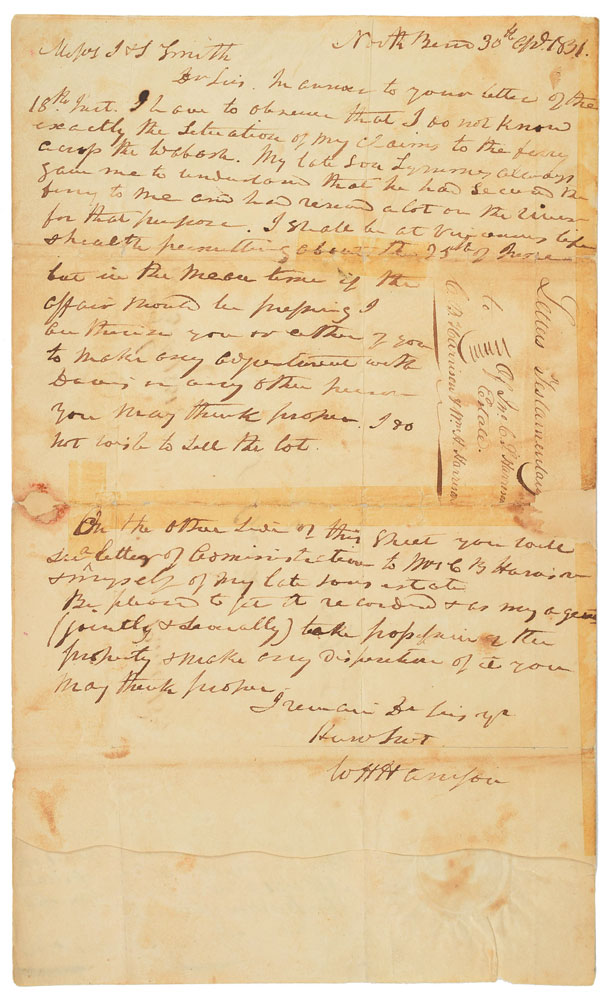 North Bend 30th Apl. 1831.
Messrs J & S Smith
Dr Sirs. In answer to your letter of the
18th Inst. I have to observe that I do not know
exactly the Situation of my claims to the ferry
across the Wabash. My late Son Symmes always
gave me to understand that he had secured the
ferry to me and had reserved a lot on the River
for that purpose. I shall be at Vincennes life
& health permitting about the 25th of June
but in the mean time if the
affair should be pressing I
authorise you or either of you
to make any adjustment with
Davis or any other person
you may think proper. I do
not wish to sell the lot.
Letters Testamentary
to
Of Jno C S Harrison
Estate.
C B Harrison & Wm H Harrison
On the other side of this sheet you will
see letter of Administration to Mrs C B Harrison
& myself of my late sons estate
Be pleased to get it recorded & as my agents
(jointly & severally) take possession of the
property & make any disposition of it you
may think proper
I remain Dr Sirs yr
Hum Svt
W H Harrison